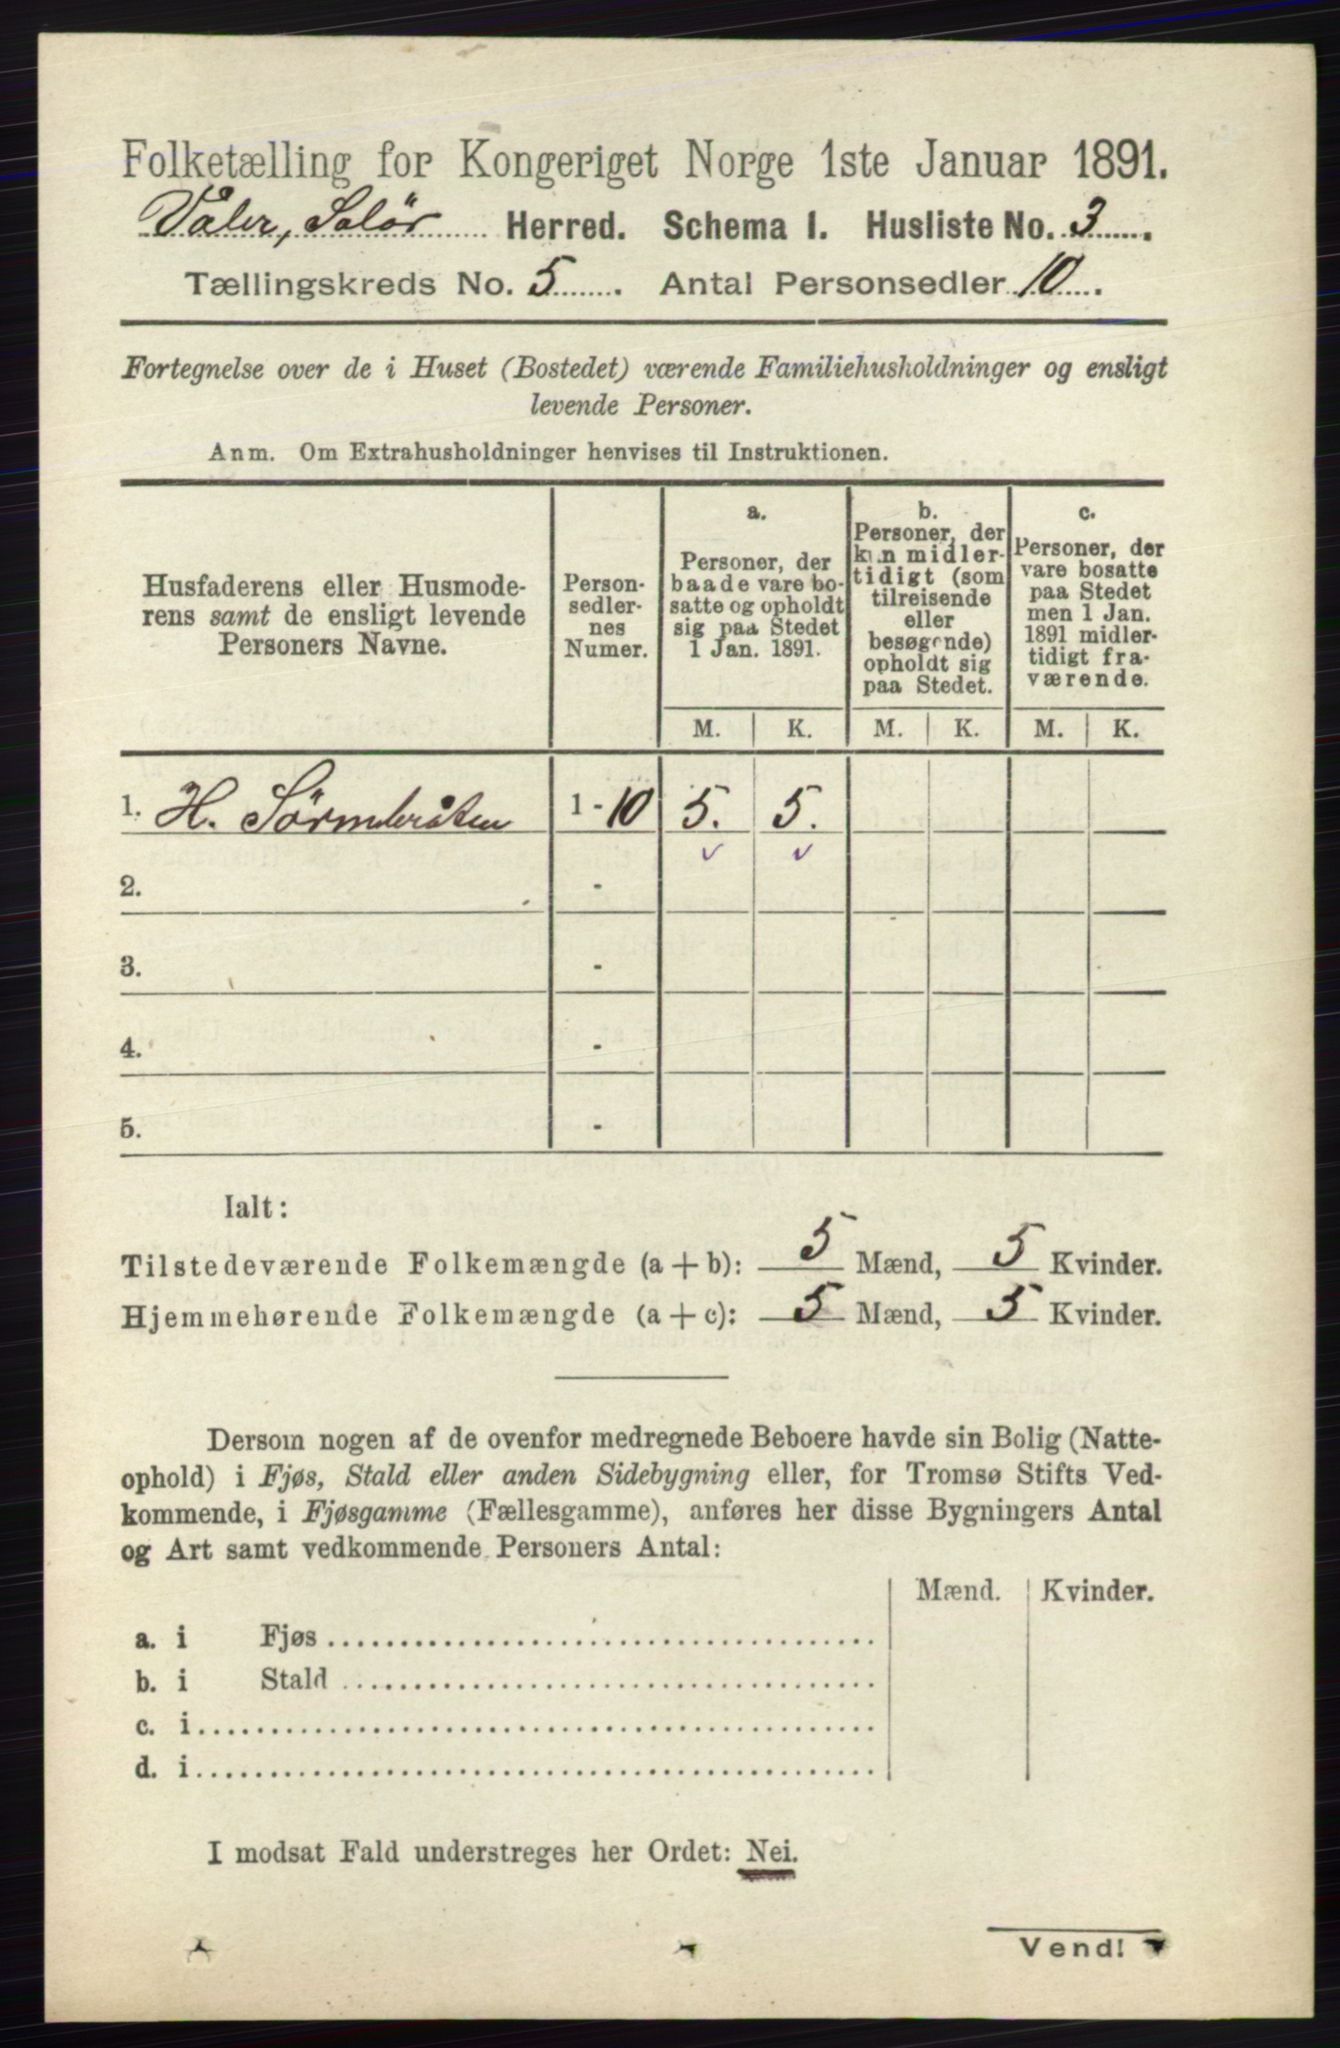 Folketælling for Kongeriget Norge 1ste Januar 1891.
Våler, Solör Herred. Schema I. Husliste No. 3.
Tællingskreds No. 5. Antal Personsedler 10.
Fortegnelse over de i Huset (Bostedet) værende Familiehusholdninger og ensligt
levende Personer.
Anm. Om Extrahusholdninger henvises til Instruktionen.
Husfaderens eller Husmode-
rens samt de ensligt levende
Personers Navne.
Person-
sedler-
nes
Numer.
a.
Personer, der
baade vare bo-
satte og opholdt
sig paa Stedet
1 Jan. 1891.
b.
Personer, der
kun midler-
tidigt (som
tilreisende
eller
besøgende)
opholdt sig
paa Stedet.
c.
Personer, der
vare bosatte
paa Stedet
men 1 Jan.
1891 midler-
tidigt fra-
værende.
M. K. M. K. M. K.
1. H. Sörmbråten 1 - 10 5. 5.
2. -
3. -
4. -
5. -
Ialt:
Tilstedeværende Folkemængde (a + b): 5 Mænd, 5 Kvinder.
Hjemmehørende Folkemængde (a + c): 5 Mænd, 5 Kvinder.
Dersom nogen af de ovenfor medregnede Beboere havde sin Bolig (Natte-
ophold) i Fjøs, Stald eller anden Sidebygning eller, for Tromsø Stifts Ved-
kommende, i Fjøsgamme (Fællesgamme), anføres her disse Bygningers Antal
og Art samt vedkommende Personers Antal:
Mænd. Kvinder.
a. i Fjøs
b. i Stald
c. i
d. i
I modsat Fald understreges her Ordet: Nei.
Vend!